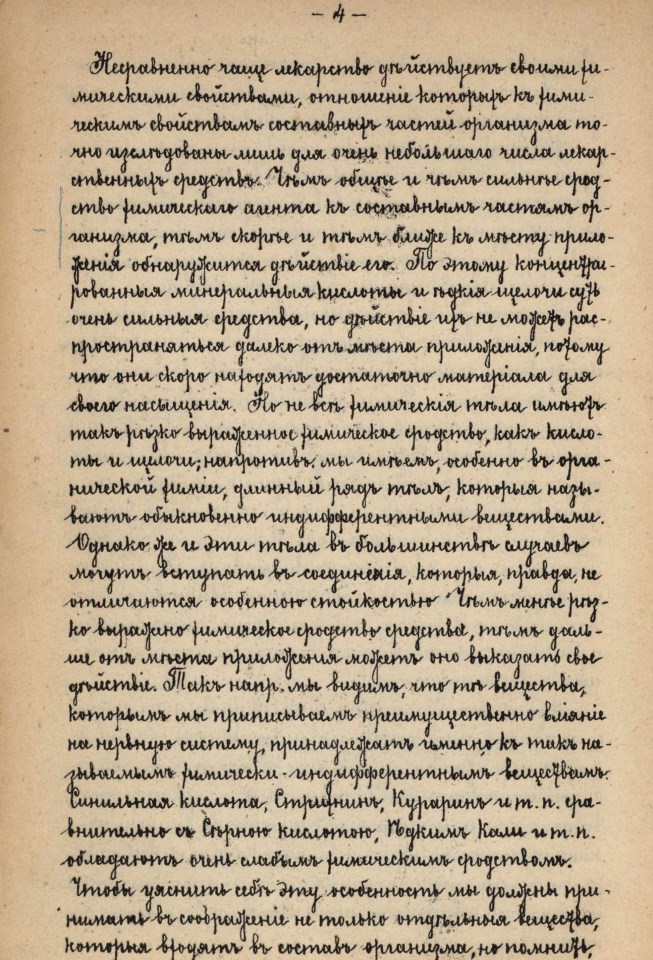 — 4 —
Несравненно чаще лекарство дѣйствуетъ своими хи-
мическими свойствами, отношеніе которыхъ къ хими-
ческимъ свойствамъ составныхъ частей организма то-
чно изслѣдованы лишь для очень небольшаго числа лекар-
ственныхъ средствъ. Чѣмъ общѣе и чѣмъ сильнѣе срод-
ство химическаго агента къ составнымъ частямъ ор-
ганизма, тѣмъ скорѣе и тѣмъ ближе къ мѣсту прило-
женія обнаружится дѣйствіе его. По этому концентри-
рованныя минеральныя кислоты и ѣдкія щелочи суть
очень сильныя средства, но дѣйствіе ихъ не можетъ рас-
пространяться далеко отъ мѣста приложенія, потому
что они скоро находятъ достаточно матеріала для
своего насыщенія. Но не всѣ химическія тѣла имѣютъ
такъ рѣзко выраженное химическое сродство, какъ кисло-
ты и щелочи; напротивъ. мы имѣемъ, особенно въ орга-
нической химіи, длинный рядъ тѣлъ, которыя назы-
ваютъ обыкновенно индифферентными веществами.
Однако же и эти тѣла въ большинствѣ случаевъ
могутъ вступать въ соединенія, которыя, правда, не
отличаются особенною стойкостью Чѣмъ менѣе рѣз-
ко выражено химическое сродство средства, тѣмъ даль-
ше отъ мѣста приложенія можетъ оно выказать свое
дѣйствіе. Такъ напр. мы видимъ, что тѣ вещества,
которымъ мы приписываемъ преимущественно вліяніе
на нервную систему, принадлежатъ именно къ такъ на-
зываемымъ химически-индифферентнымъ веществамъ.
Синильная кислота, Стрихнинъ, Кураринъ и т. п. сра-
внительно съ Сѣрною кислотою, Ѣдкимъ Кали и т. п.
обладаютъ очень слабымъ химическимъ сродствомъ.
Чтобы уяснить себѣ эту особенность мы должны при-
нимать въ соображеніе не только отдѣльныя вещества,
которыя входятъ въ составъ организма, но помнить,